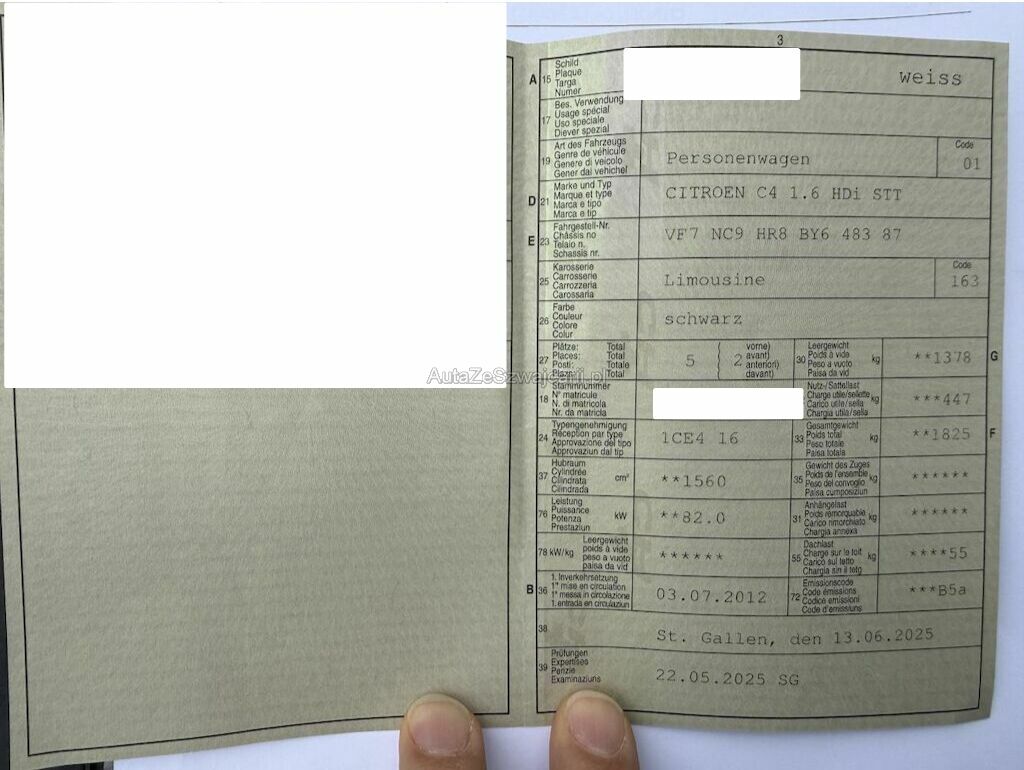 3
A 15 Schild
Plaque
Targa
Numer
weiss
17 Bes. Verwendung
Usage spécial
Uso speciale
Diever spezial
19 Art des Fahrzeugs
Genre de véhicule
Genere di veicolo
Gener dal vehichel
Personenwagen
Code
01
D 21 Marke und Typ
Marque et type
Marca e tipo
Marca e tip
CITROEN C4 1.6 HDi STT
E 23 Fahrgestell-Nr.
Châssis no
Telaio n.
Schassis nr.
VF7 NC9 HR8 BY6 483 87
25 Karosserie
Carrosserie
Carrozzeria
Carossaria
Limousine
Code
163
26 Farbe
Couleur
Colore
Colur
schwarz
27 Plätze: Total
Places: Total
Posti: Totale
Plazs: Total
5 ( 2 vorne)
avant)
anteriori)
davant)
30 Leergewicht
Poids à vide
Peso a vuoto
Paisa da vid
kg
**1378 G
AutaZeSzwajcarii.pl
18 Stammnummer
N° matricule
N. di matricola
Nr. da matricla
Nutz-/Sattellast
Charge utile/sellette
Carico utile/sella
Chargia utila/sella
kg
***447
24 Typengenehmigung
Réception par type
Approvazione del tipo
Approvaziun dal tip
1CE4 16
33 Gesamtgewicht
Poids total
Peso totale
Paisa totala
kg
**1825 F
37 Hubraum
Cylindrée
Cilindrata
Cilindrada
cm³
**1560
35 Gewicht des Zuges
Poids de l'ensemble
Peso del convoglio
Paisa cumposiziun
kg
******
76 Leistung
Puissance
Potenza
Prestaziun
kW
**82.0
31 Anhängelast
Poids remorquable
Carico rimorchiato
Chargia annexa
kg
******
78 kW/kg Leergewicht
poids à vide
peso a vuoto
paisa da vid
******
55 Dachlast
Charge sur le toit
Carico sul tetto
Chargia sin il tetg
kg
****55
B 36 1. Inverkehrsetzung
1re mise en circulation
1a messa in circolazione
1. entrada en circulaziun
03.07.2012
72 Emissionscode
Code émissions
Codice emissioni
Code d'emissiuns
***B5a
38
St. Gallen, den 13.06.2025
39 Prüfungen
Expertises
Perizie
Examinaziuns
22.05.2025 SG